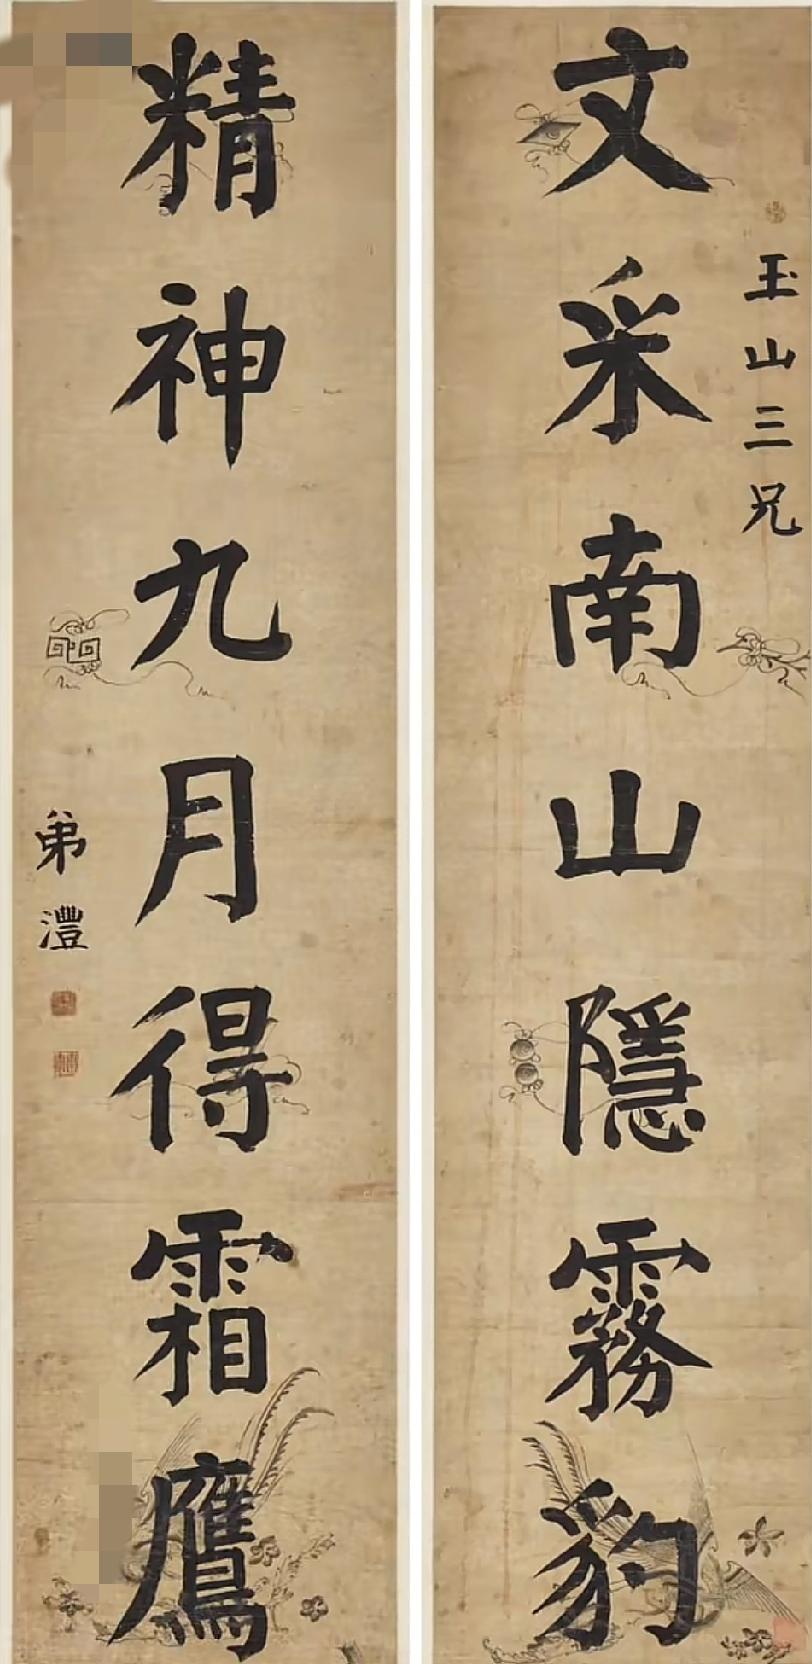 玉山三兄
文采南山隱霧豹
精神九月得霜鷹
弟澧